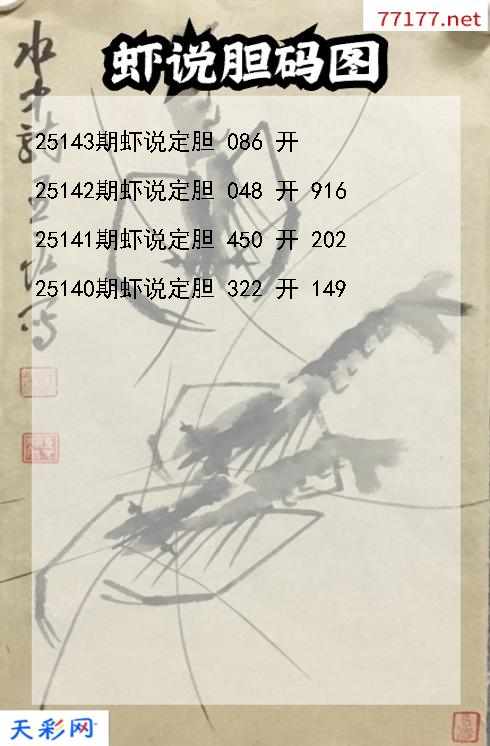 77177.net
虾说胆码图
25143期虾说定胆 086 开
25142期虾说定胆 048 开 916
25141期虾说定胆 450 开 202
25140期虾说定胆 322 开 149
天彩网